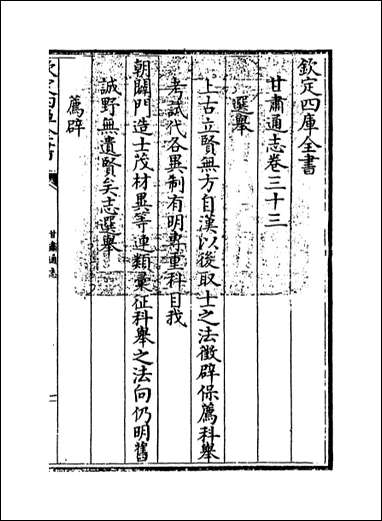 欽定四庫全書
甘肅通志卷三十三
選舉
上古立賢無方自漢以後取士之法徵辟保薦科舉
考試代各異制有明專重科目我
朝闢門造士茂材異等連類彚征科舉之法向仍明舊
誠野無遺賢矣志選舉
薦辟
甘肅通志
一